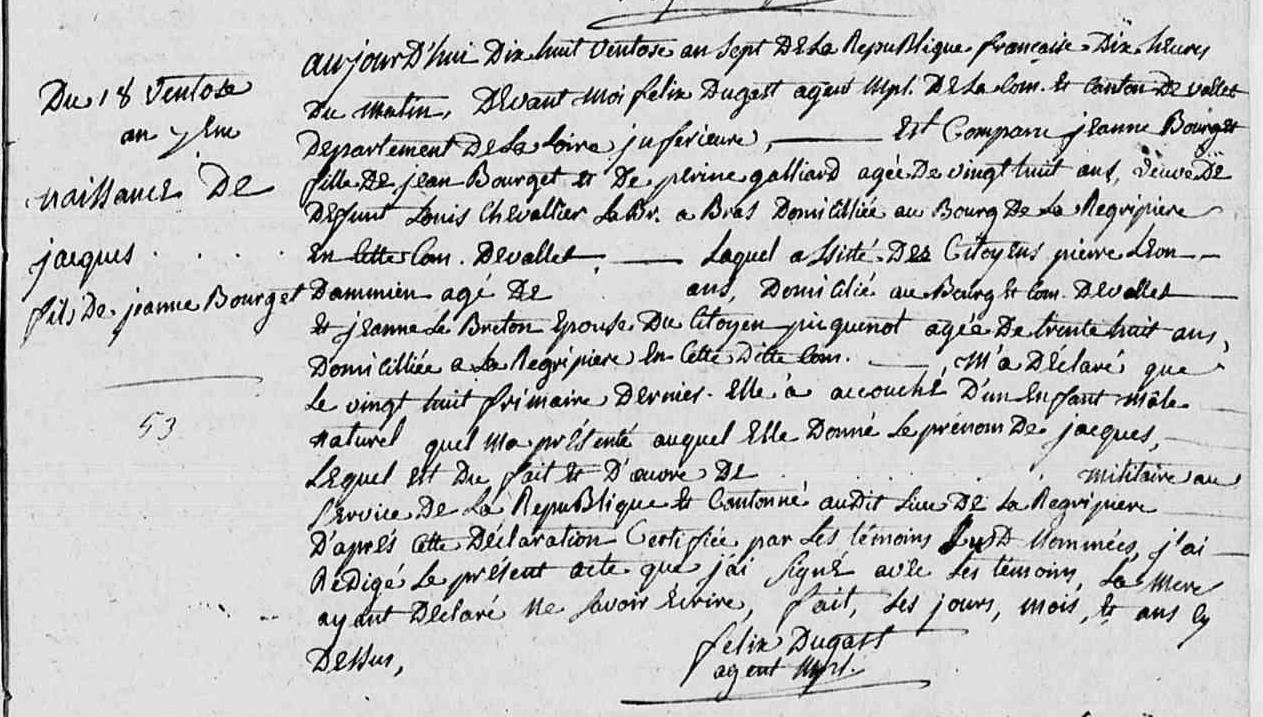 Du 18 Ventose
an 7 eme
naissance De
jacques . . . .
fils De jeanne Bourget
53
aujourD'hui Dix huit ventose an sept De La RepuBlique française Dix heures
Du matin, Devant moi felix Dugast agent Mpl. De La Com. et canton De vallet
Departement De La Loire inferieure, est Comparu jeanne Bourget
fille De jean Bourget et De perine galliard agée De vingt huit ans, veuve De
Defunt Louis Chevallier La Br. a Bras Domicilliée au Bourg De La Regripiere
En Cette Com. De vallet, Laquel assisté Des Citoyens pierre Leon
Dammien agé De ans, Domicilié au Bourg et Com. De vallet
et jeanne Le Breton Epouse Du Citoyen picquenot agée De trente huit ans,
Domicilliée a La Regripiere En Cette Ditte Com. M'a Déclaré que
Le vingt huit frimaire Dernier Elle à accouché D'un Enfant mâle
naturel quel ma présenté auquel Elle Donné Le prénom De jacques,
Lequel est Du fait et D'œuvre De . . . . militaire au
Service De La RepuBlique et Cantonné audit Lieu De La Regripiere
D'aprés Cette Déclaration Certifiée par Les témoins nommées, j'ai
Rédigé Le présent acte que j'ai Signé avec Les témoins, La mere
ayant Déclaré ne Savoir Ecrire, fait, Les jours, mois, et ans Cy
Dessus,
felix Dugast
agent Mpl.